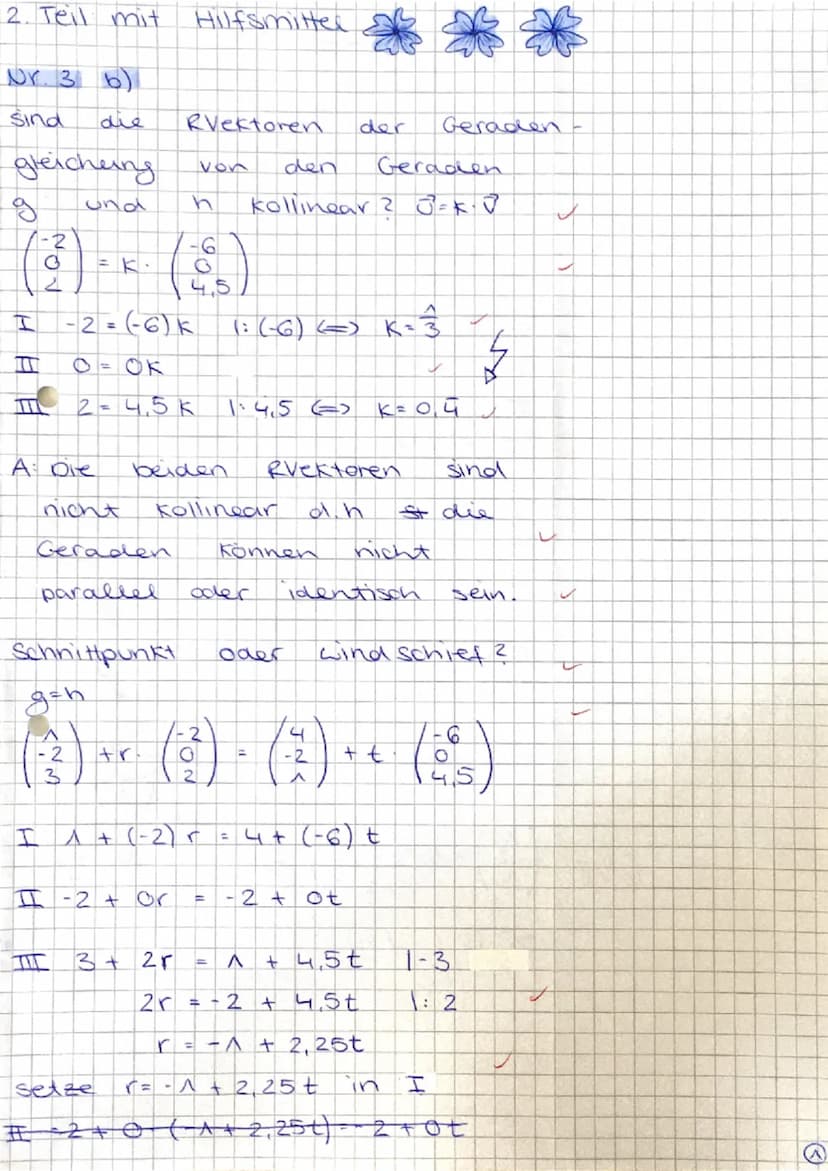 2. Teil mit Hilfsmittel
Nr. 3 b)
sind die RVektoren der Geraden-
gleichung von den Geraden
g und h kollinear? v⃗=k·v⃗
(-2 0 2) = k · (-6 0 4,5)
I -2 = (-6)k |:(-6) <=> k = 1/3
II 0 = 0k
III 2 = 4,5k |:4,5 <=> k = 0,4̄
A: Die beiden RVektoren sind
nicht kollinear d.h die
Geraden können nicht
parallel oder identisch sein.
Schnittpunkt oder windschief?
g=h
(1 -2 3) + r · (-2 0 2) = (4 -2 1) + t · (-6 0 4,5)
I 1 + (-2) r = 4 + (-6) t
II -2 + 0r = -2 + 0t
III 3 + 2r = 1 + 4,5t |-3
2r = -2 + 4,5t |: 2
r = -1 + 2,25t
setze r = -1 + 2,25t in I
II -2 + 0 · (-1 + 2,25t) = -2 + 0t
1